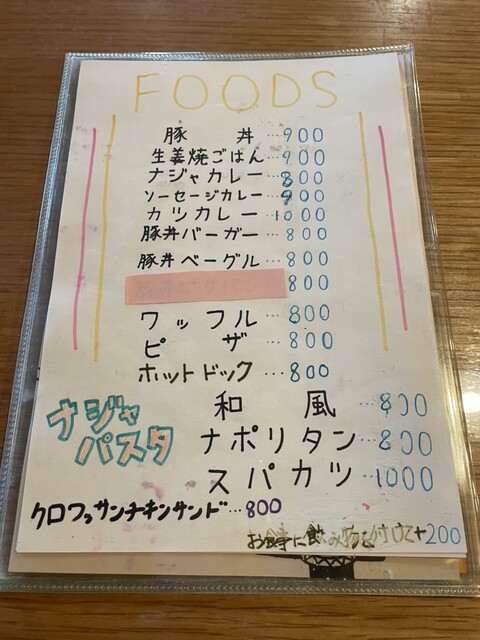 FOODS
豚丼…900
生姜焼ごはん…900
ナジャカレー…800
ソーセージカレー…900
カツカレー…1000
豚丼バーガー…800
豚丼ベーグル…800
800
ワッフル…800
ピザ…800
ホットドック…800
ナジャパスタ
和風…800
ナポリタン…800
スパカツ…1000
クロワッサンチキンサンド…800
お食事に飲み物を付けて+200